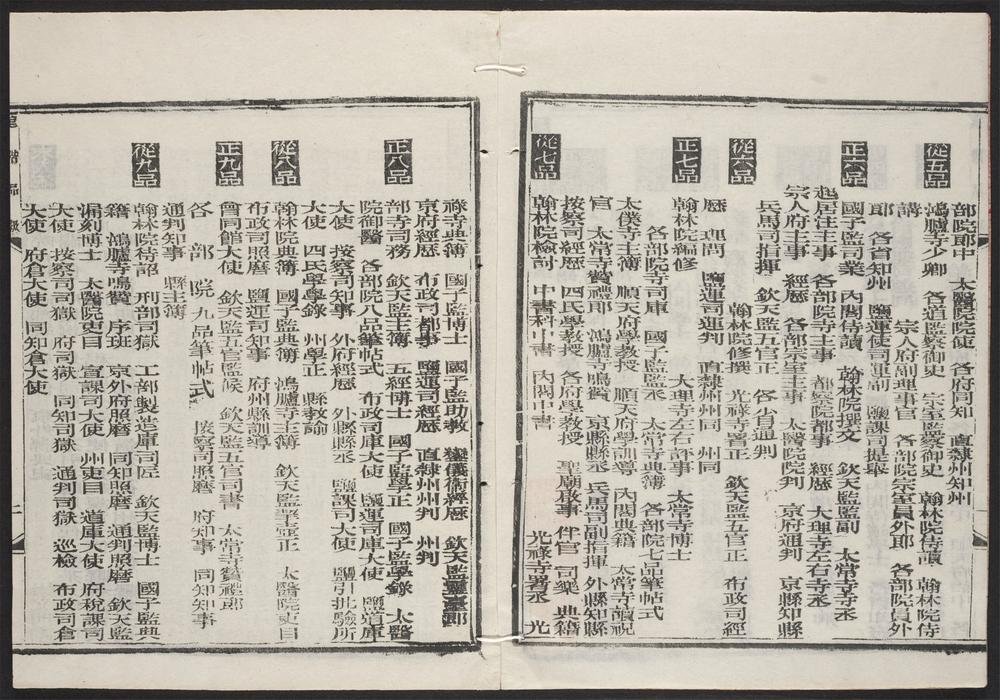 部院郎中　太醫院院使　各府同知　直隸州知州
從五品
鴻臚寺少卿　各道監察御史　宗室監察御史　翰林院侍讀　翰林院侍
講　宗人府副理事官　各部院宗室員外郎　各部院員外
郎　各省知州　鹽運使司運副　鹽課司提舉
正六品
國子監司業　內閣侍讀　翰林院撰文　欽天監監副　太常寺寺丞
起居注主事　各部院寺主事　都察院都事　經歷　大理寺左右寺丞
宗人府主事　經歷　各部宗室主事　太醫院院判　京府通判　京縣知縣
兵馬司指揮　欽天監五官正　各省通判
從六品
翰林院修撰　光祿寺署正　欽天監五官正　布政司經
歷　理問　鹽運司運判　直隸州州同　州同
正七品
翰林院編修　大理寺左右評事　太常寺博士
各部院寺司庫　國子監監丞　太常寺典簿　各部院七品筆帖式
太僕寺主簿　順天府學教授　順天府學訓導　內閣典籍　太常寺讀祝
官　太常寺贊禮郎　鴻臚寺鳴贊　京縣縣丞　兵馬司副指揮　外縣知縣
按察司經歷　四氏學教授　各府學教授　聖廟啟事　伴官　司樂　典籍
從七品
翰林院檢討　中書科中書　內閣中書　光祿寺署丞　光
祿寺典簿　國子監博士　國子監助教　鑾儀衛經歷　欽天監靈臺郎
京府經歷　布政司都事　鹽運司經歷　直隸州州判　州判
正八品
部寺司務　欽天監主簿　五經博士　國子監學正　國子監學錄　太醫
院御醫　各部院八品筆帖式　布政司庫大使　鹽運司庫大使　鹽道庫
大使　按察司知事　外府經歷　外縣縣丞　鹽課司大使　鹽引批驗所
大使　四氏學學錄　州學正　縣教諭
從八品
翰林院典簿　國子監典簿　鴻臚寺主簿　欽天監挈壺正　太醫院吏目
布政司照磨　鹽運司知事　府州縣訓導
正九品
會同館大使　欽天監五官監候　欽天監五官司書　太常寺贊禮郎
各部院九品筆帖式　按察司照磨　府知事　同知知事
通判知事　縣主簿
從九品
翰林院待詔　刑部司獄　工部製造庫司匠　欽天監博士　國子監典
籍　鴻臚寺鳴贊　序班　京外府照磨　同知照磨　通判照磨　欽天監
漏刻博士　太醫院吏目　宣課司大使　州吏目　道庫大使　府稅課司
大使　按察司司獄　府司獄　同知司獄　通判司獄　巡檢　布政司倉
大使　府倉大使　同知倉大使